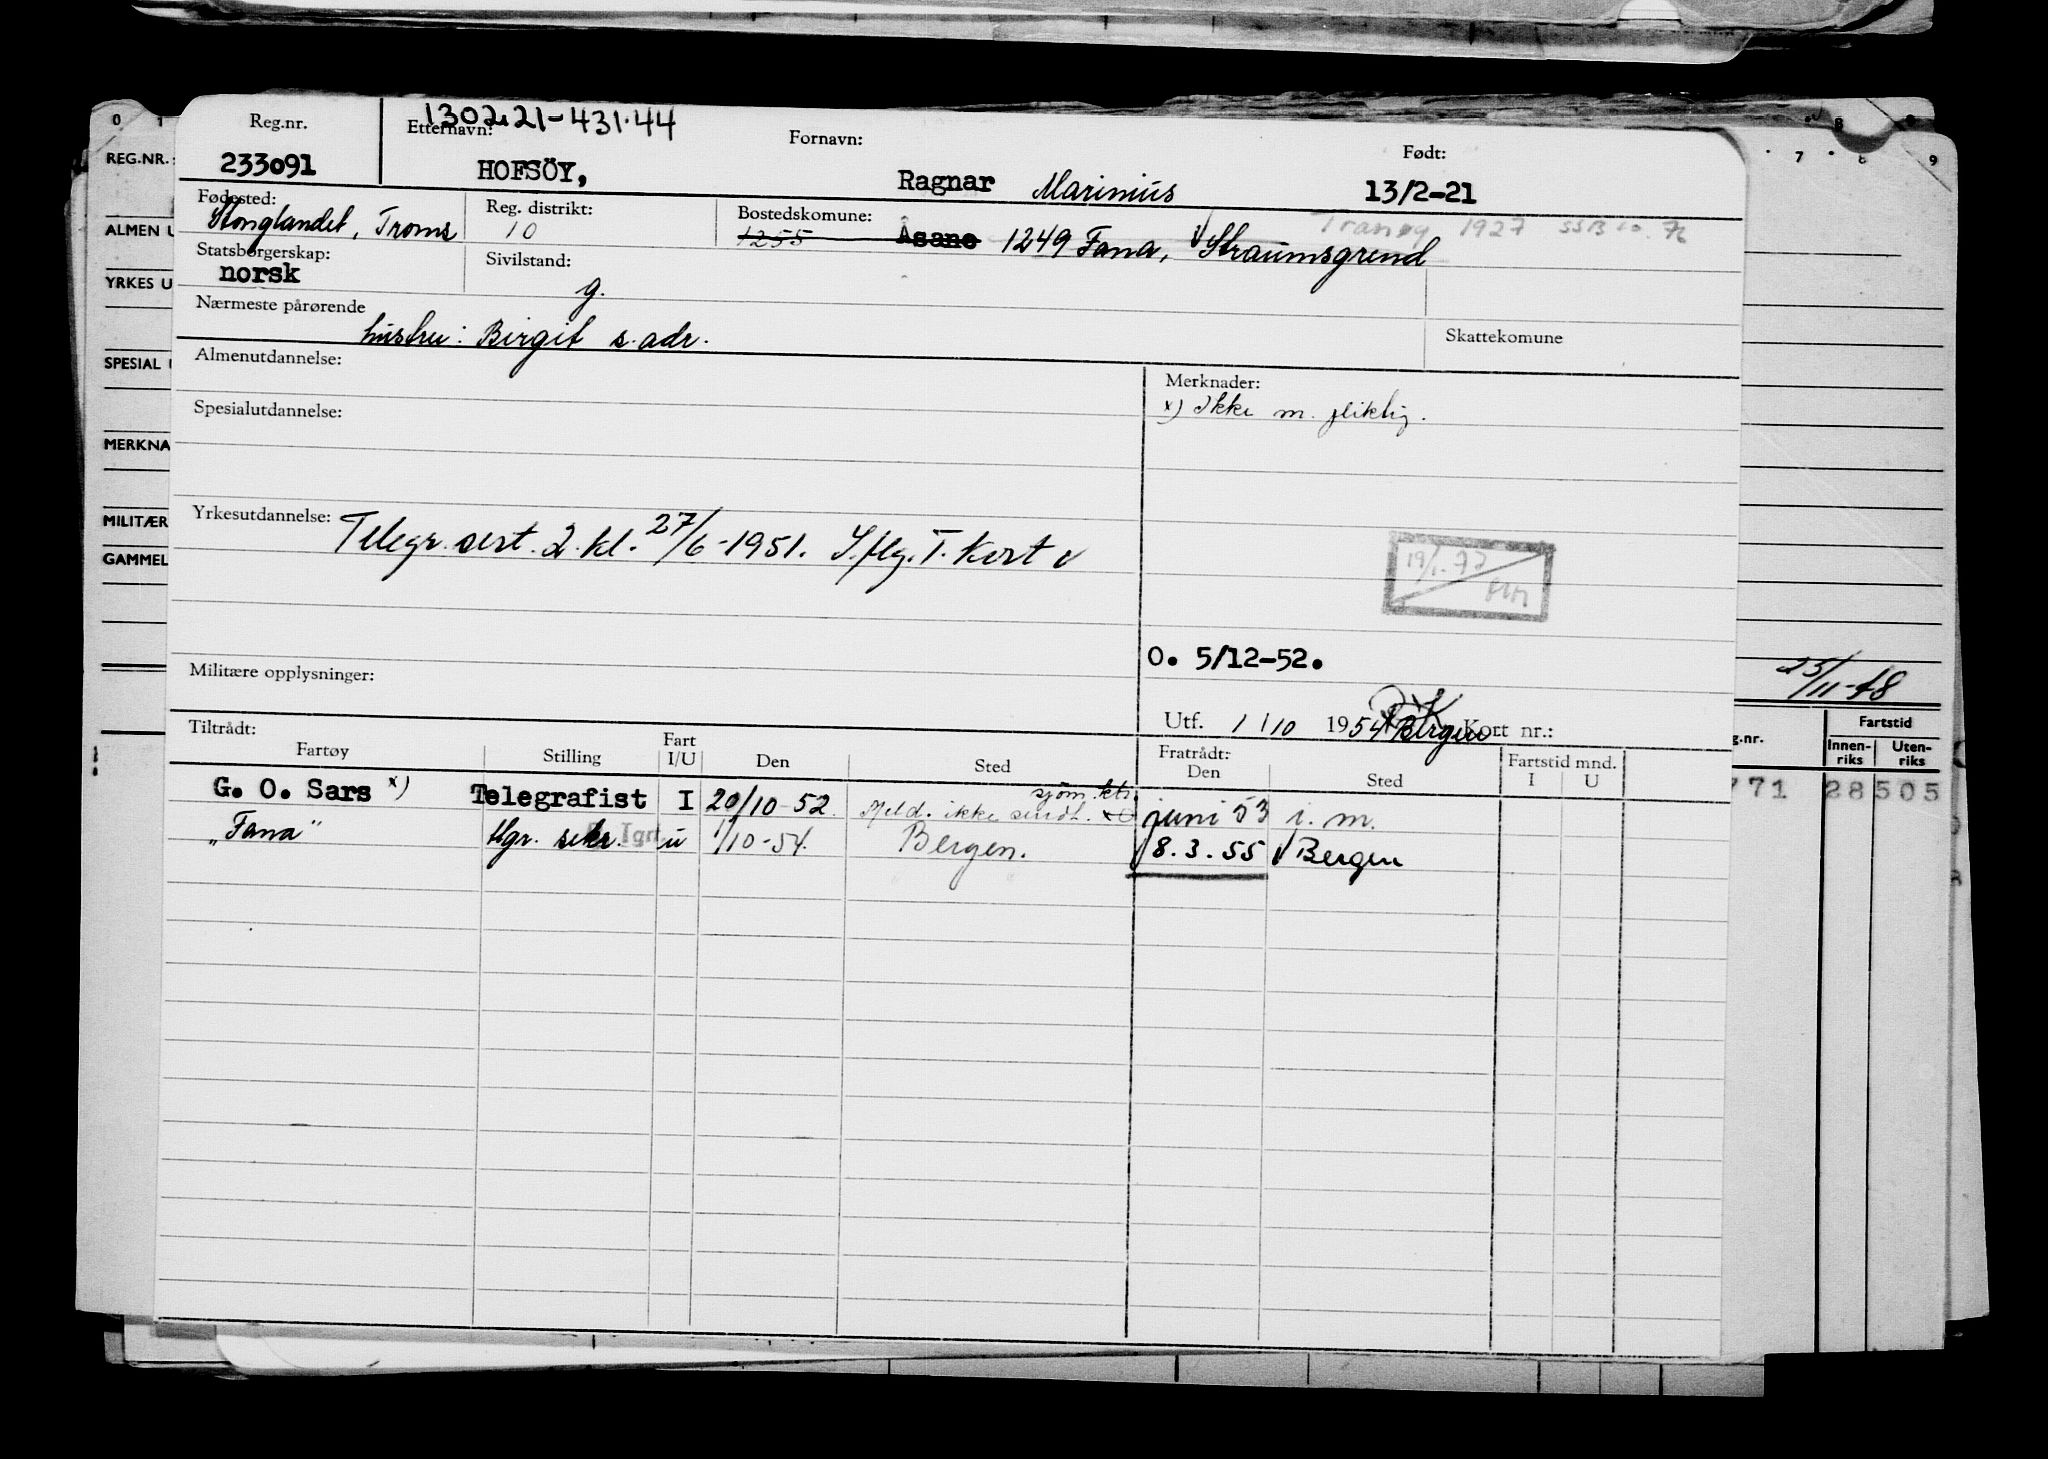 130221-431.44
Reg.nr. Etternavn: Fornavn: Født:
233091 HOFSÖY, Ragnar Marinius 13/2-21
Fødested: Reg. distrikt: Bostedskomune:
Stonglandet, Troms 10 1255 Åsane 1249 Fana, Straumsgrend Tranøy 1927 SSB 10.76
Statsborgerskap: Sivilstand:
norsk g.
Nærmeste pårørende
hustru: Birgit s. adr. Skattekomune
Almenutdannelse: Merknader:
x) Ikke m. pliktig.
Spesialutdannelse:
Yrkesutdannelse: Telegr. sert. 2. kl. 27/6-1951. I flg. T. Kort
19/1-77
O. 5/12-52.
Militære opplysninger:
Utf. 1/10 1954 Bergen Kort nr.:
Tiltrådt: Fratrådt:
Fartøy Stilling Fart I/U Den Sted Den Sted Fartstid mnd. I U
G. O. Sars x) Telegrafist I 20/10-52 Meld. ikke sendt sjøm.ktr. juni 53 i. m.
"Fana" tlgr. sekr. u 1/10-54. Bergen. 8.3.55 Bergen
0 1 7 8 9
REG.NR.:
ALMEN U
YRKES U
SPESIAL
MERKNA
MILITÆR
GAMMEL
25/11-48
g.nr. Fartstid
Innen-riks Uten-riks
771 28 505